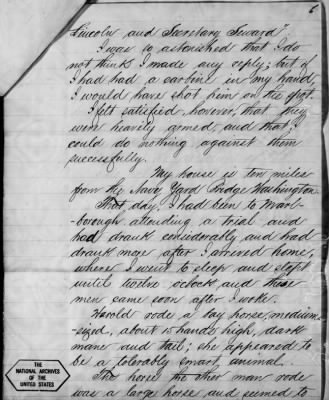 6
Lincoln and Secretary Seward."
I was so astonished that I do
not think I made any reply; but if
I had had a carbine in my hand,
I would have shot him on the spot.
I felt satisfied, however, that they
were heavily armed, and that I
could do nothing against them
successfully.
My house is ten miles
from the Navy Yard bridge Washington.
That day I had been to Marl-
-borough attending a trial and
had drank considerably and had
drank more after I arrived home,
where I went to sleep and slept
until twelve o,clock and these
men came soon after I woke.
Harold rode a bay horse, medium-
-sized, about 15 hands high, dark
mane and tail; she appeared to
be a tolerably smart animal.
The horse the other man rode
was a large horse and seemed to
THE
NATIONAL ARCHIVES
OF THE
UNITED STATES